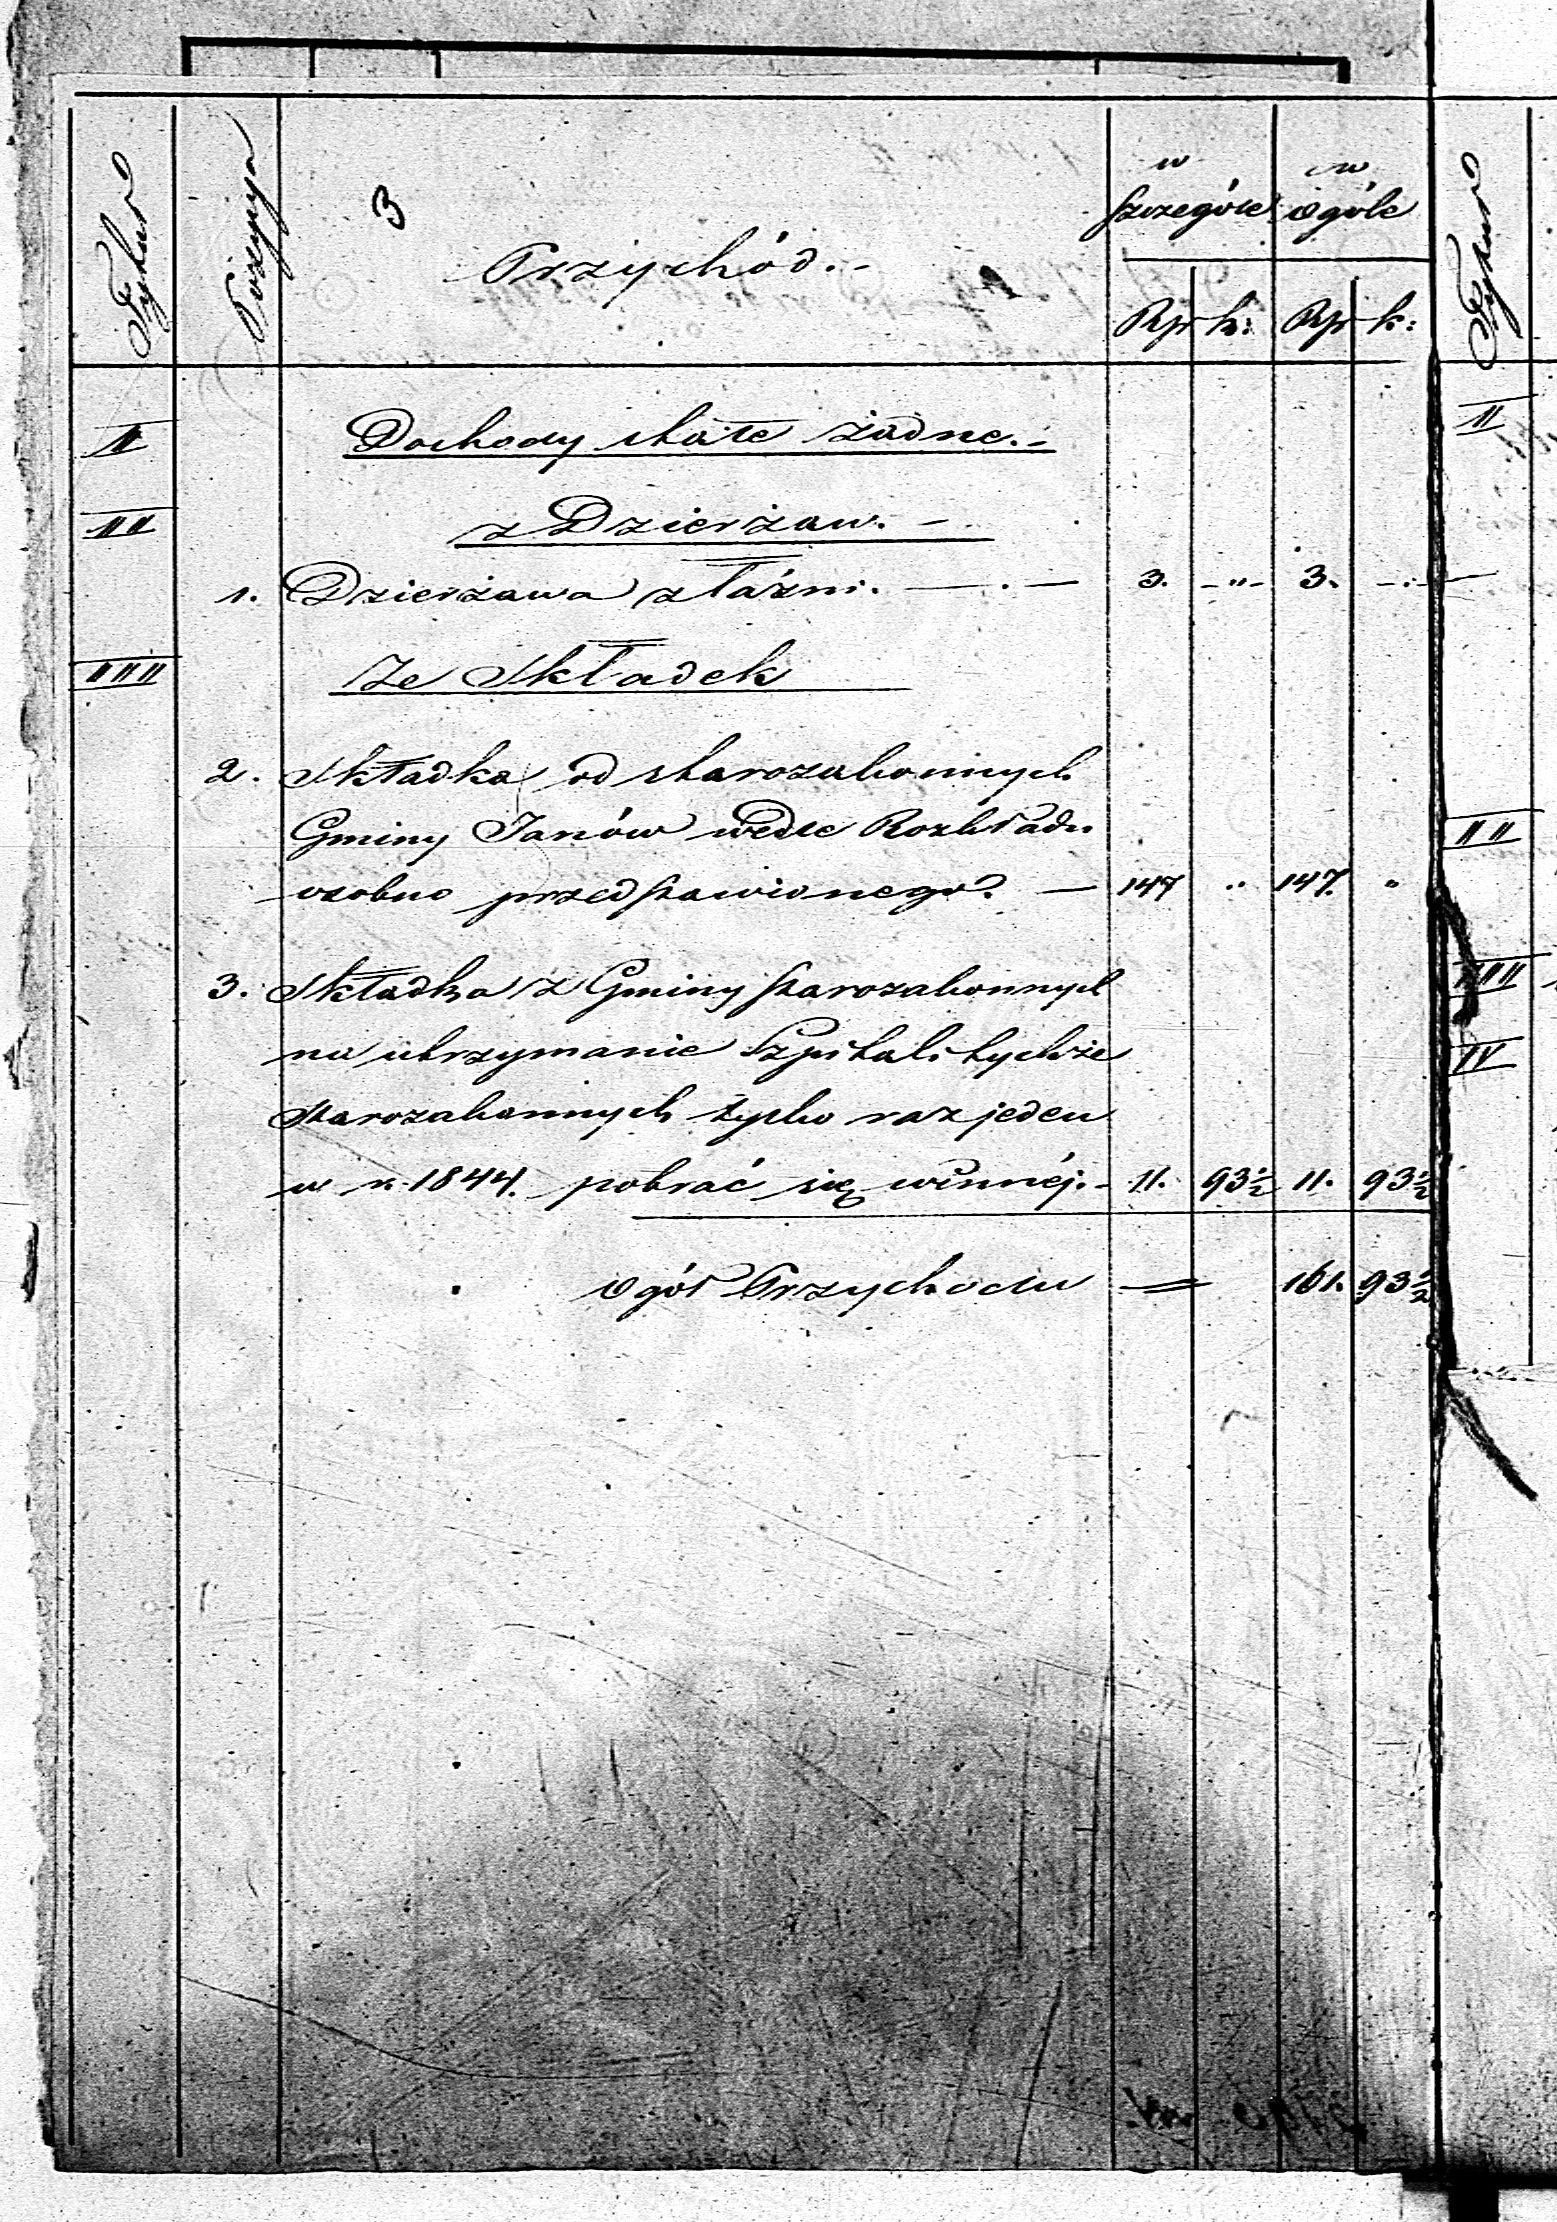 Tytuł
Pozycya
3
Przychód.-
w szczególe
w ogóle
Rsr k:
Rsr k:
Tytuł
I
Dochody stałe żadne.-
II
z Dzierżaw. -
1. Dzierżawa z łaźni. — . — 3. -"- 3. -"-
III
Ze Składek
2. Składka od starozakonnych
Gminy Janów wedle Rozkładu
osobno przedstawionego. — 147 " 147. "
3. Składka z Gminy starozakonnych
na utrzymanie Szpitali tychże
starozakonnych tylko raz jeden
w r. 1844. pobrać się winnéj.- 11. 93½ 11. 93½
Ogół Przychodu = 161. 93½
II
III
IV